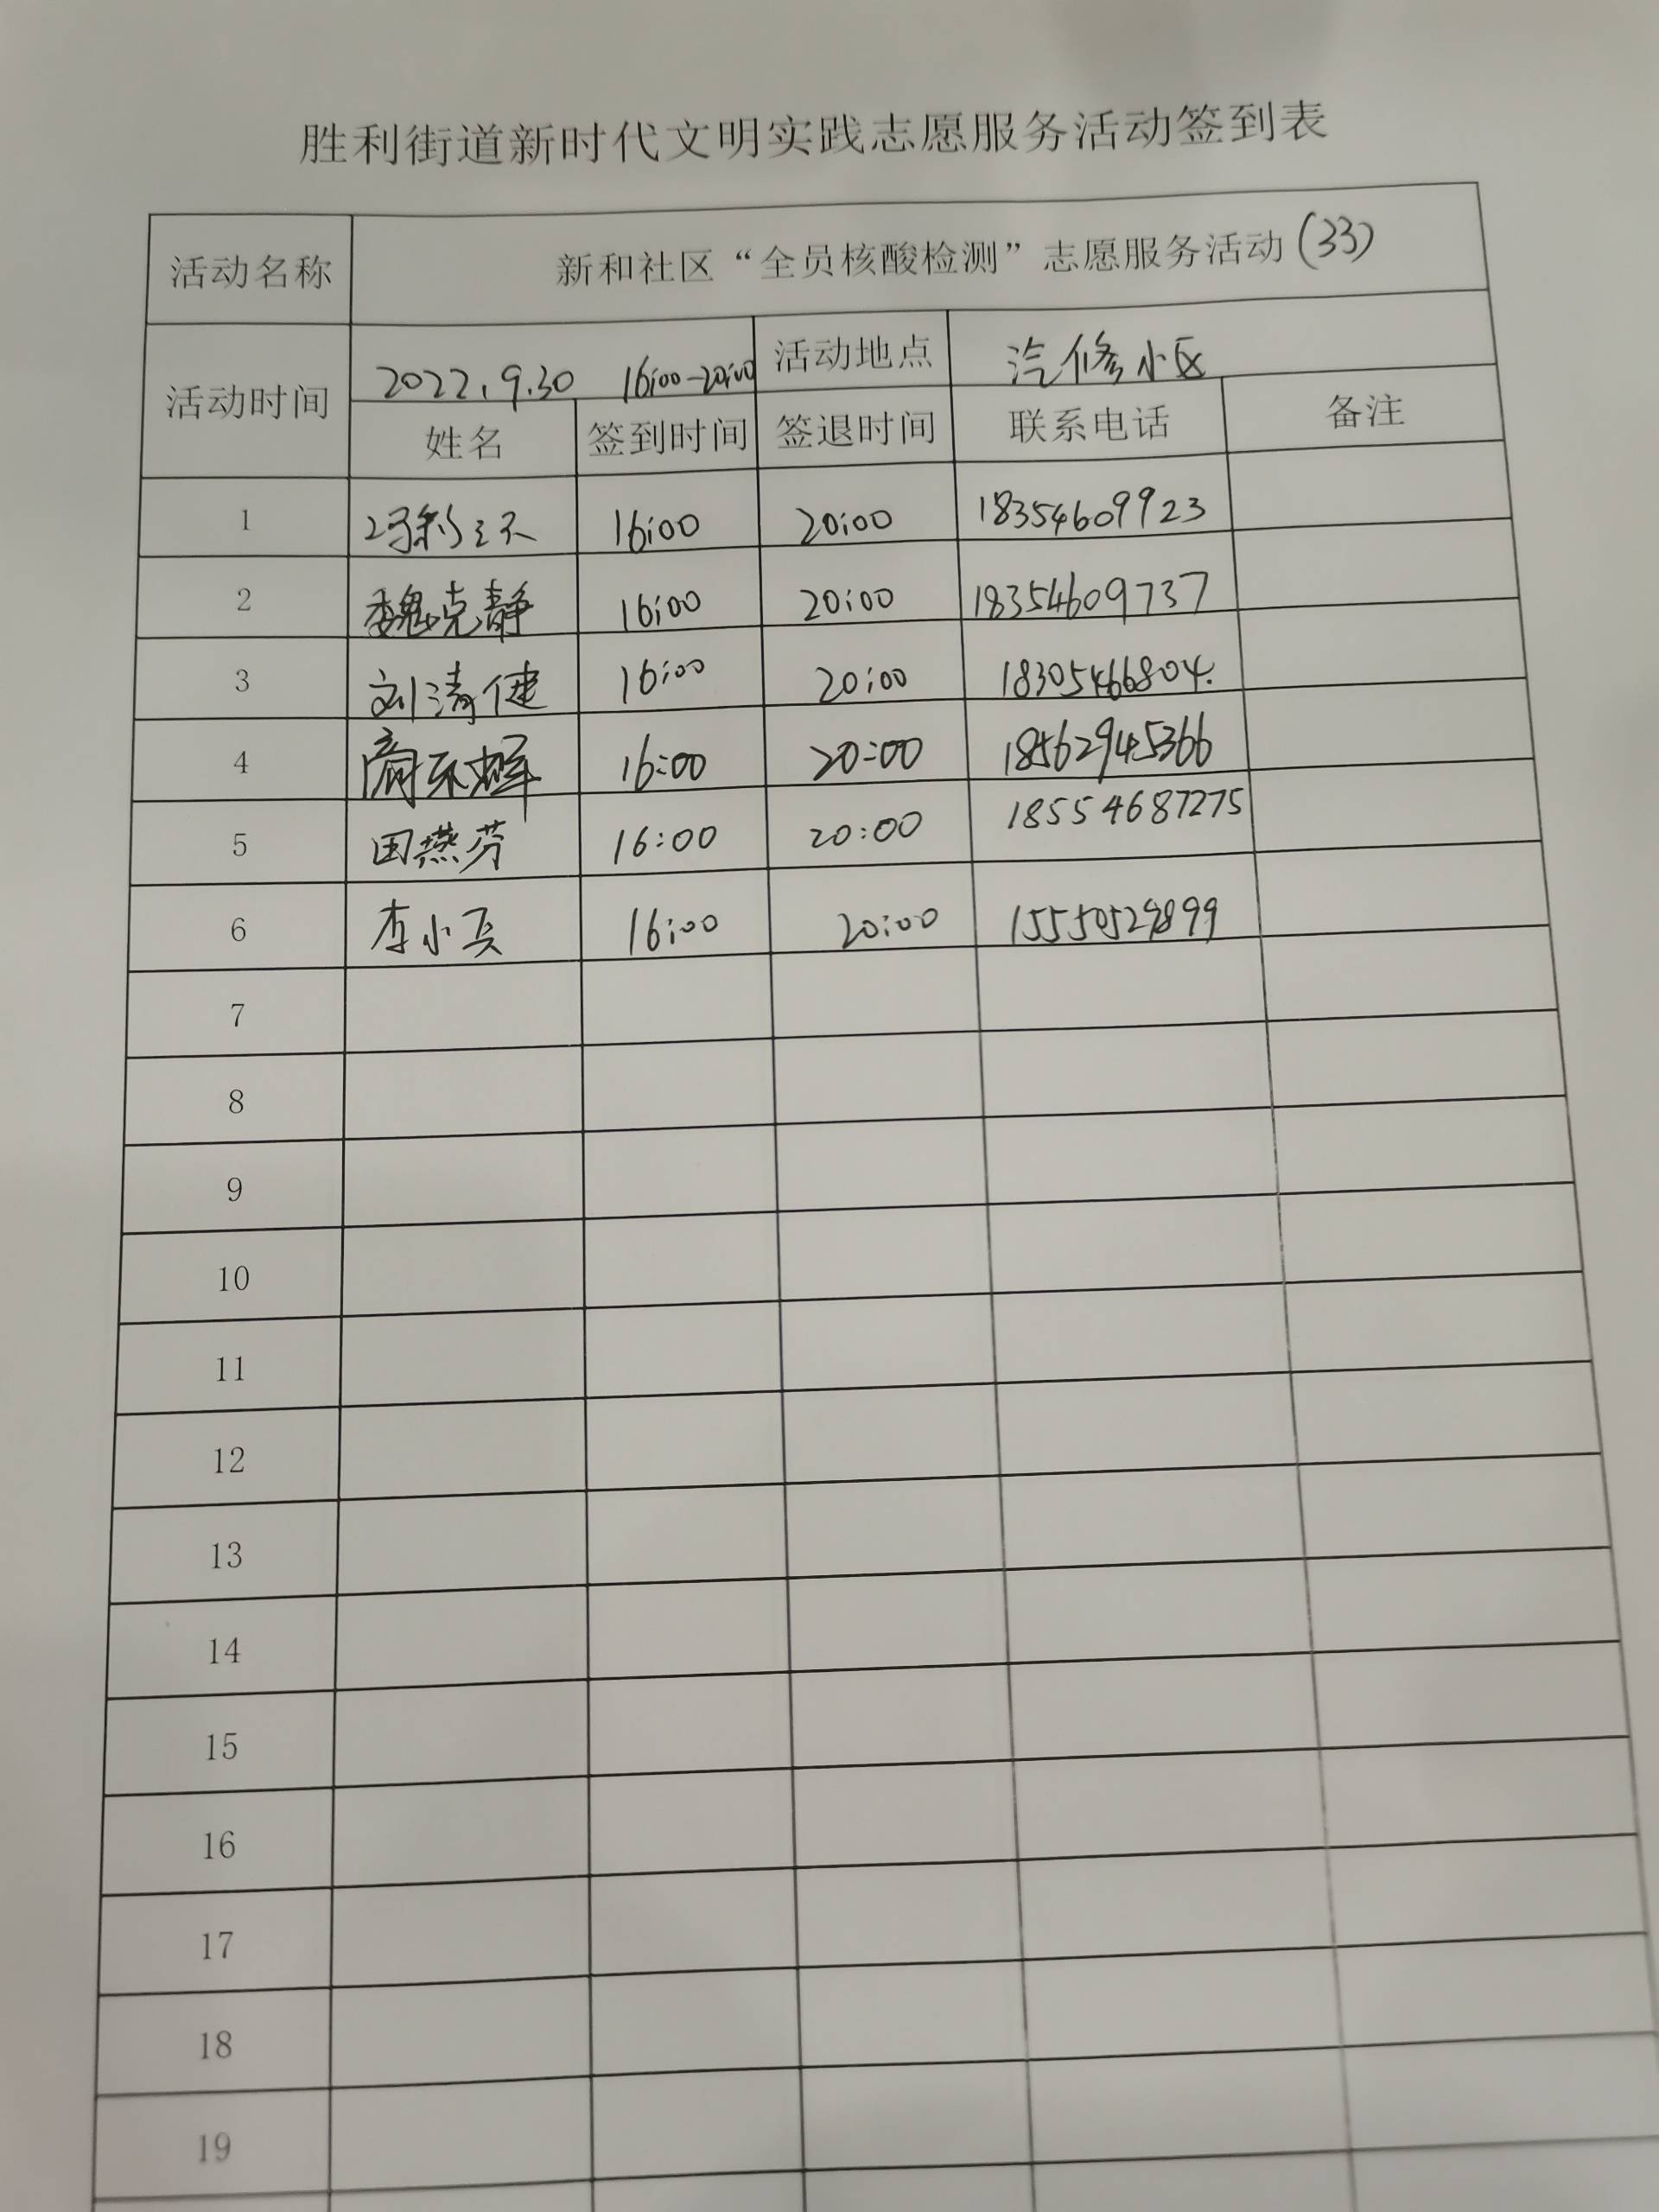 胜利街道新时代文明实践志愿服务活动签到表
活动名称 新和社区“全员核酸检测”志愿服务活动(33)
活动时间 2022.9.30 16:00-20:00 活动地点 汽修小区
姓名 签到时间 签退时间 联系电话 备注
1 16:00 20:00 18354609923
2 魏克静 16:00 20:00 18354609737
3 刘清健 16:00 20:00 18305466804.
4 16:00 20:00 18562945366
5 田燕芬 16:00 20:00 18554687275
6 李小兵 16:00 20:00 15550529899
7
8
9
10
11
12
13
14
15
16
17
18
19